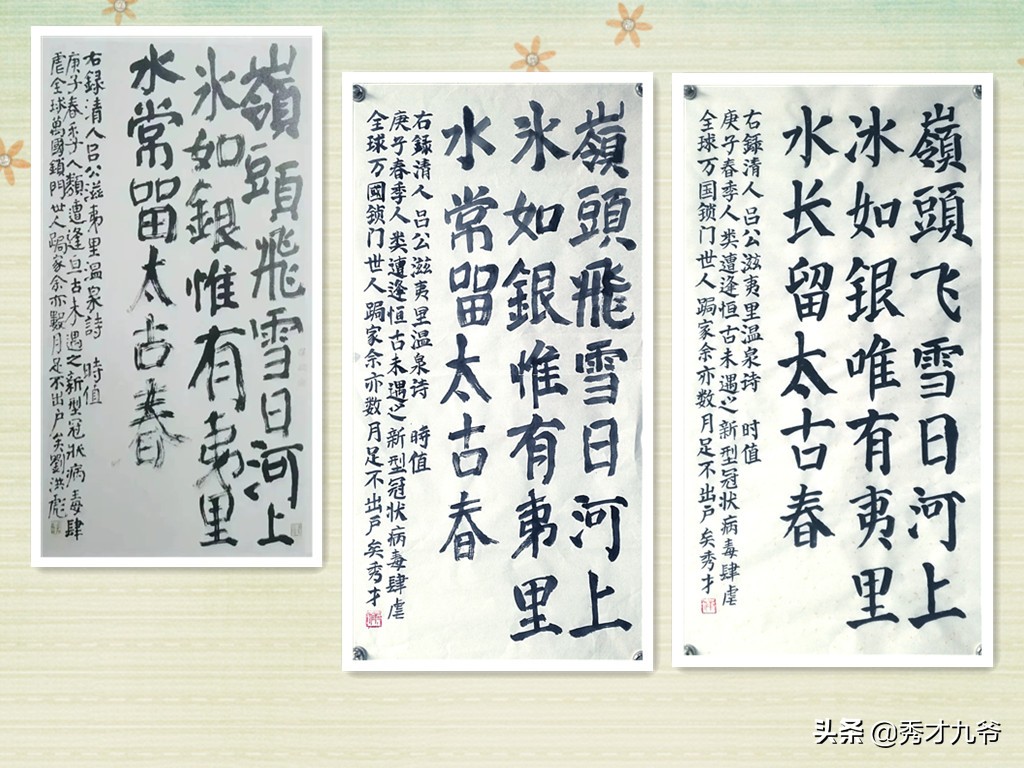 嶺頭飛雪日河上
氷如銀惟有夷里
水常畱太古春
右録清人吕公滋夷里温泉詩 時值
庚子春季人類遭逢亘古未遇之新型冠狀病毒肆
虐全球萬國鎖門世人跼家余亦數月足不出户矣劉洪彪
嶺頭飛雪日河上
氷如銀惟有夷里
水常畱太古春
右録清人吕公滋夷里温泉诗 時值
庚子春季人类遭逢恒古未遇之新型冠状病毒肆虐
全球万國锁门世人跼家余亦数月足不出户矣秀才
嶺頭飞雪日河上
冰如银唯有夷里
水长留太古春
右録清人吕公滋夷里温泉诗 时值
庚子春季人类遭逢恒古未遇之新型冠状病毒肆虐
全球万国锁门世人跼家余亦数月足不出户矣秀才
头条 @秀才九爷